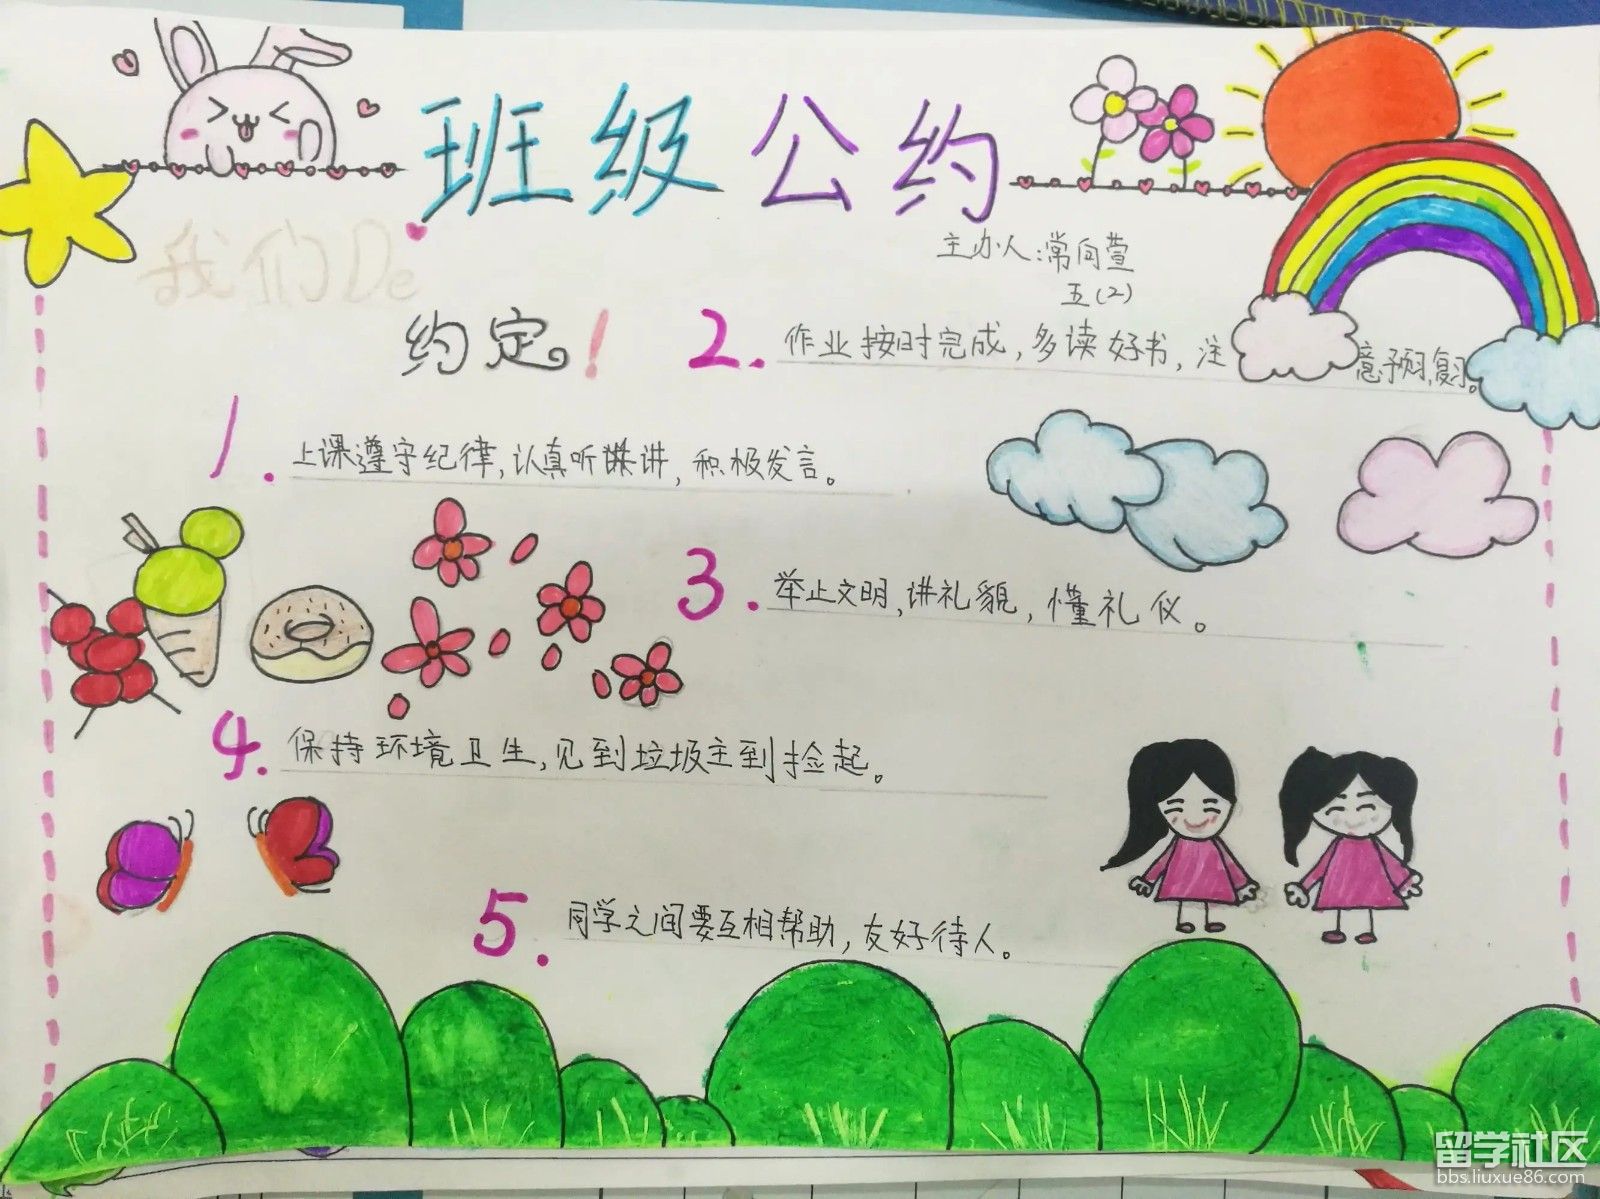 班级公约
主办人:常向萱
五(2)
我们De
约定。!
1. 上课遵守纪律,认真听讲,积极发言。
2. 作业按时完成,多读好书,注意预习,复习。
3. 举止文明,讲礼貌,懂礼仪。
4. 保持环境卫生,见到垃圾主到捡起。
5. 同学之间要互相帮助,友好待人。
留学社区
bbs.liuxue86.com